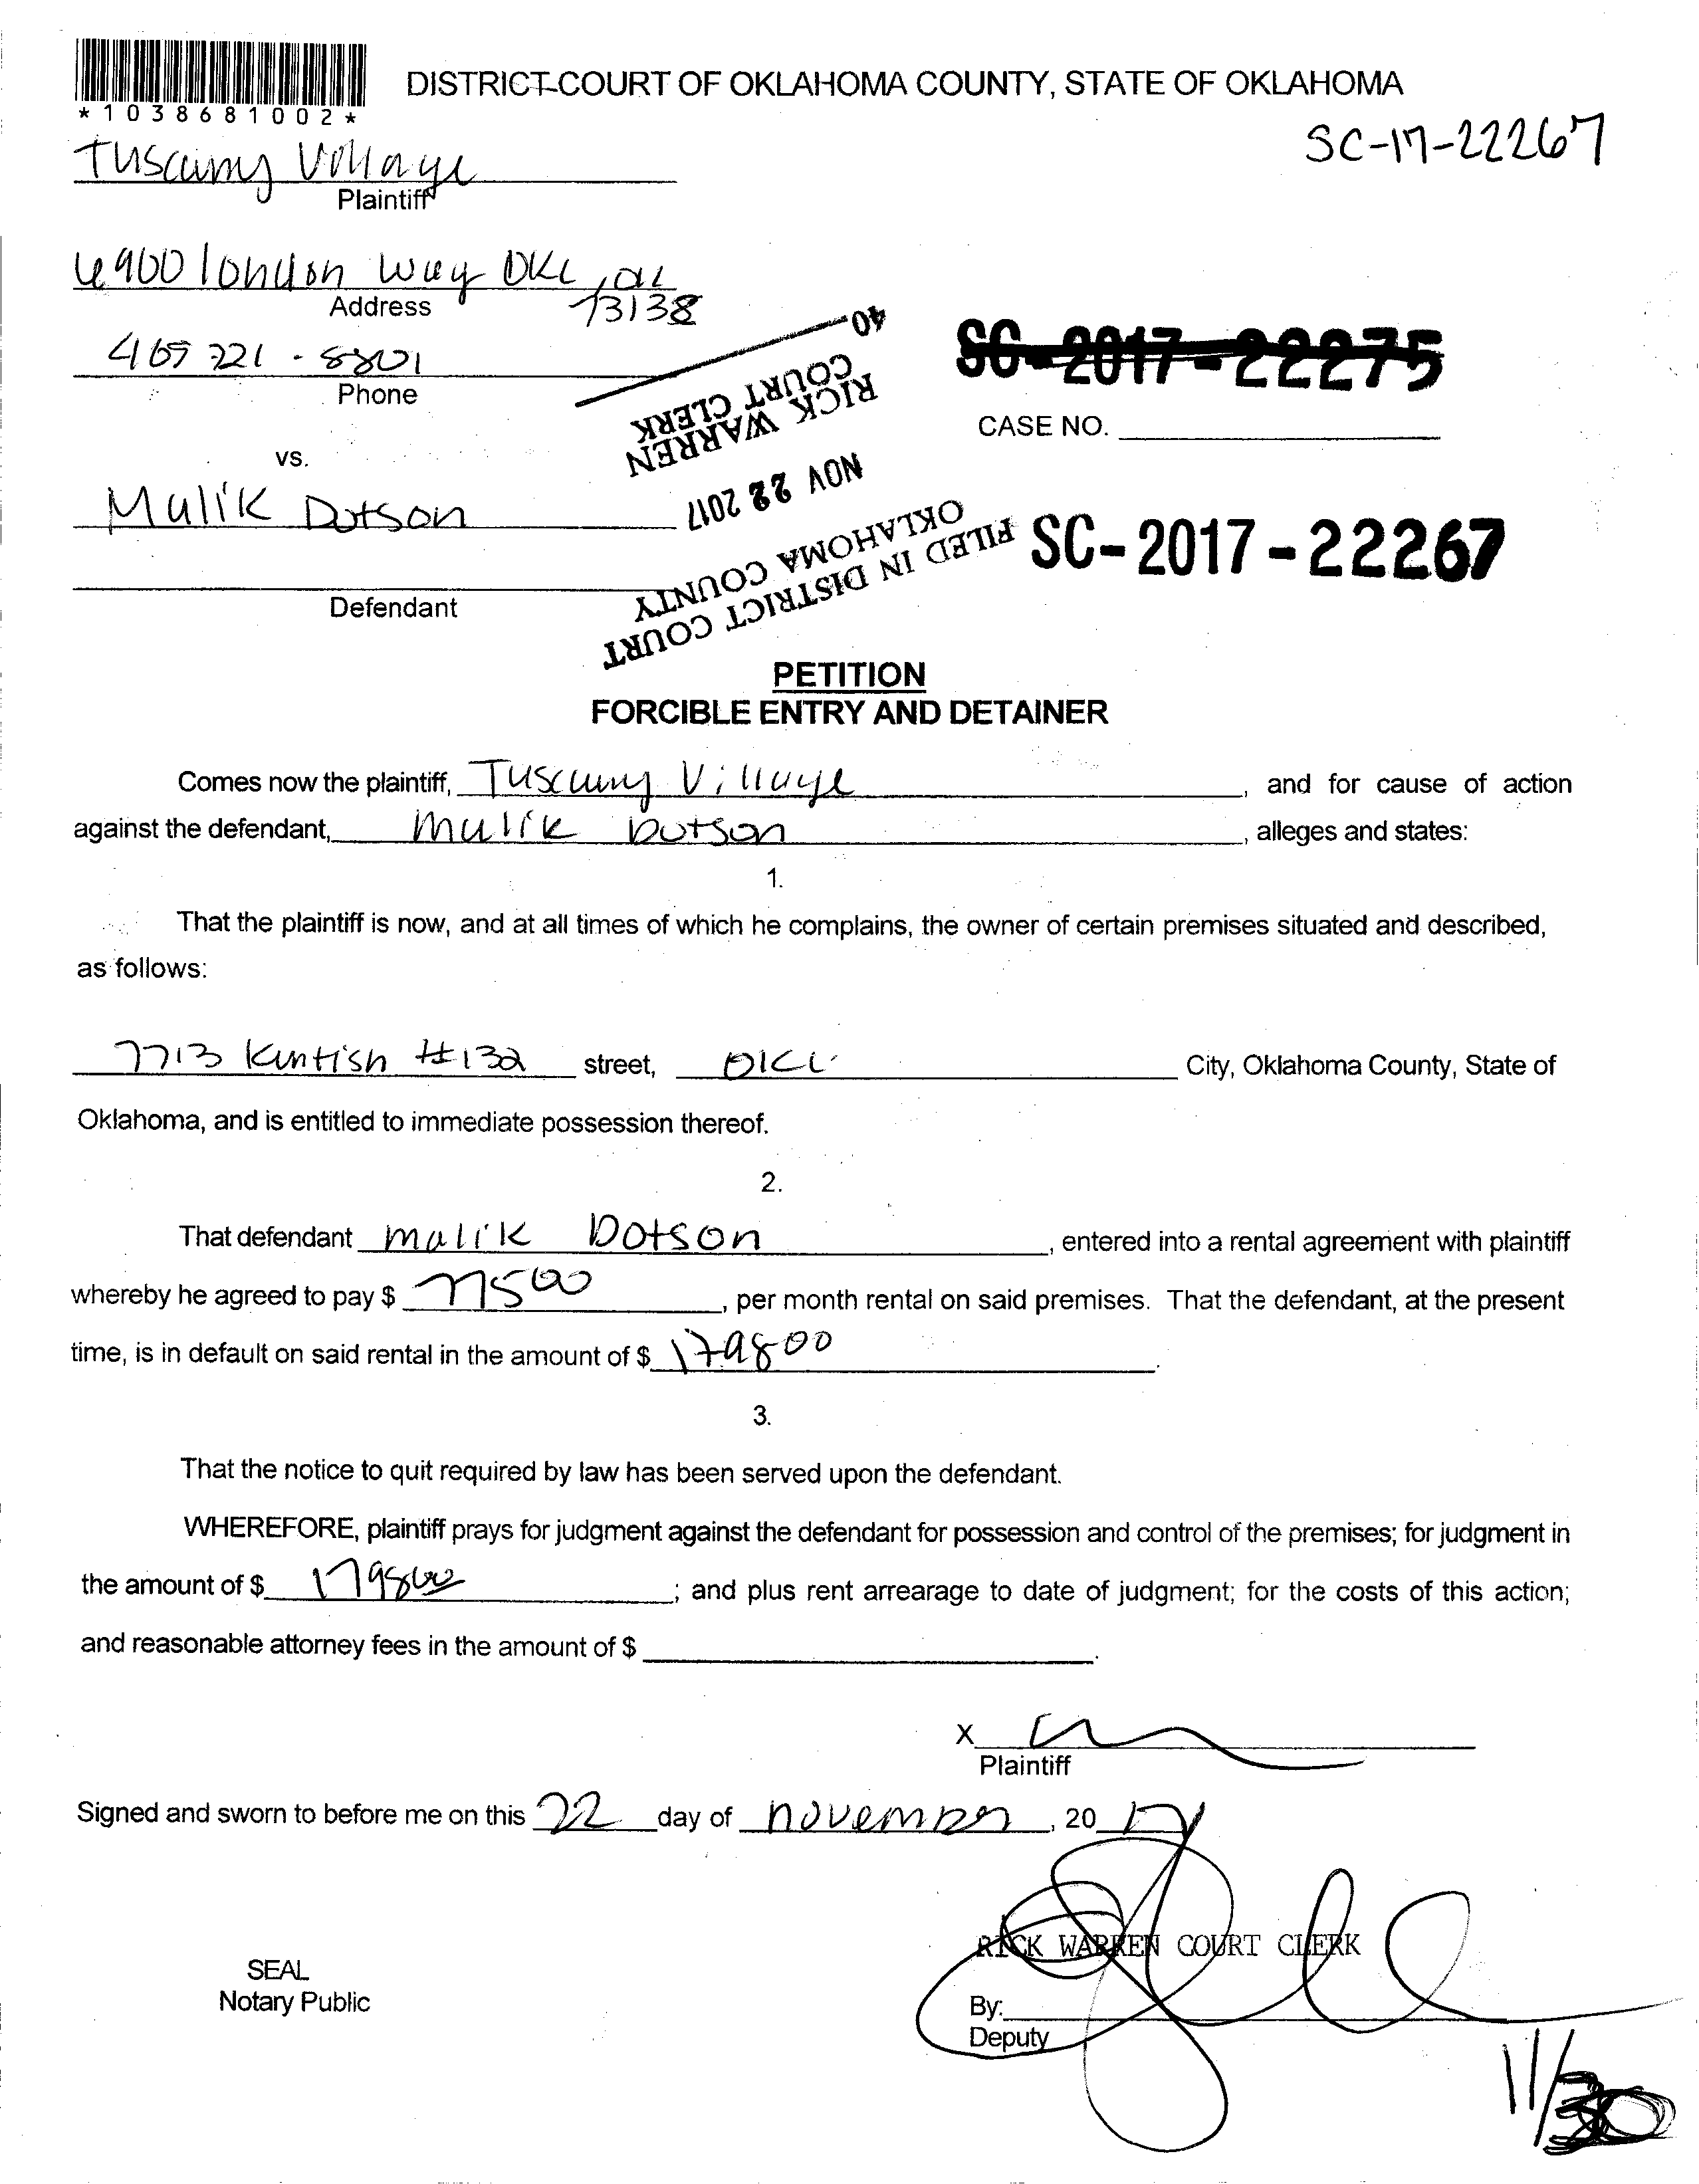 DISTRICT COURT OF OKLAHOMA COUNTY, STATE OF OKLAHOMA
*1038681002*
SC-17-22267
Tuscany Village
Plaintiff
6900 london Way OKC, OK
73138
Address
405 721 - 8801
Phone
SC-2017-22275
CASE NO.
vs.
Malik Dotson
Defendant
FILED IN DISTRICT COURT
OKLAHOMA COUNTY
NOV 22 2017
RICK WARREN
COURT CLERK
40
SC-2017-22267
PETITION
FORCIBLE ENTRY AND DETAINER
Comes now the plaintiff, Tuscany Village, and for cause of action
against the defendant, Malik Dotson, alleges and states:
1.
That the plaintiff is now, and at all times of which he complains, the owner of certain premises situated and described,
as follows:
7713 #132 street, OKC City, Oklahoma County, State of
Oklahoma, and is entitled to immediate possession thereof.
2.
That defendant Malik Dotson, entered into a rental agreement with plaintiff
whereby he agreed to pay $ 77500, per month rental on said premises. That the defendant, at the present
time, is in default on said rental in the amount of $ 179800.
3.
That the notice to quit required by law has been served upon the defendant.
WHEREFORE, plaintiff prays for judgment against the defendant for possession and control of the premises; for judgment in
the amount of $ 179800; and plus rent arrearage to date of judgment; for the costs of this action;
and reasonable attorney fees in the amount of $
X
Plaintiff
Signed and sworn to before me on this 22 day of november, 20 17
RICK WARREN COURT CLERK
SEAL
Notary Public
By:
Deputy
11/30